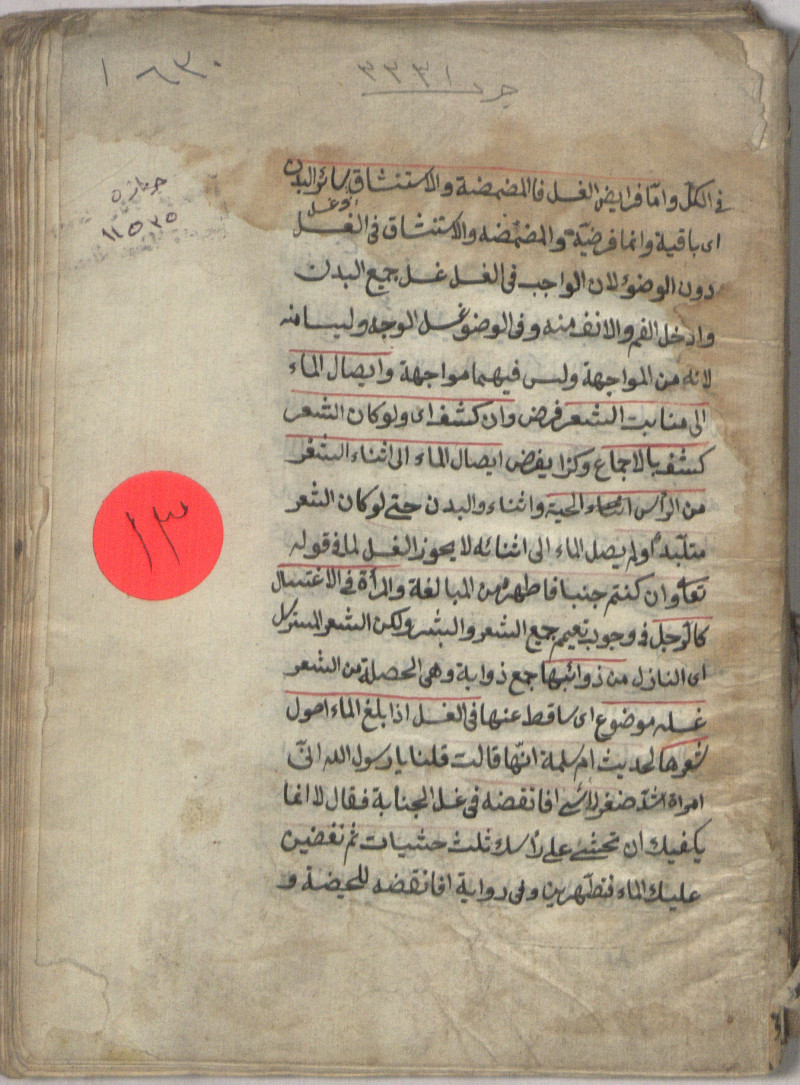 ١٦٣٠
جرد ٣٣٣١
٥
١١٥٢٥
في الكل واما فرايض الغسل فالمضمضة والاستنشاق وغسل سائر البدن
اى باقية وانما فرضية والمضمضه والاستنشاق فى الغسل
دون الوضوء لان الواجب فى الغسل غسل جميع البدن
وادخل الفم والانف منه وفى الوضوء غسل الوجه وليسا منه
لانه من المواجهة وليس فيهما مواجهة وايصال الماء
الى منابت الشعر فرض وان كشف اى ولو كان الشعر
كشف بالاجماع وكذا يفرض ايصال الماء الى اثناء الشعر
من الراس اللحية واثناء والبدن حتى لو كان الشعر
متلبدا ولم يصل الماء الى اثنائه لا يجوز الغسل لما فى قوله
تعا وان كنتم جنبا فاطهروا من المبالغة والمرأة فى الاغتسال
كالرجل فى وجوب تعميم جميع الشعر والبشر ولكن الشعر المسترسل
اى النازل من ذوائبها جمع ذوابة وهى الحصلة من الشعر
غسله موضوع اى ساقط عنها فى الغسل اذا بلغ الماء اصول
شعرها لحديث ام سلمة انها قالت قلنا يا رسول الله انى
امراة اشد ضفر راسى افانقضه فى غسل الجنابة فقال لا انما
يكفيك ان تحثى على راسك ثلث حثيات ثم تفضين
عليك الماء فتطهرين وفى رواية افانقضه للحيضة و
١٣